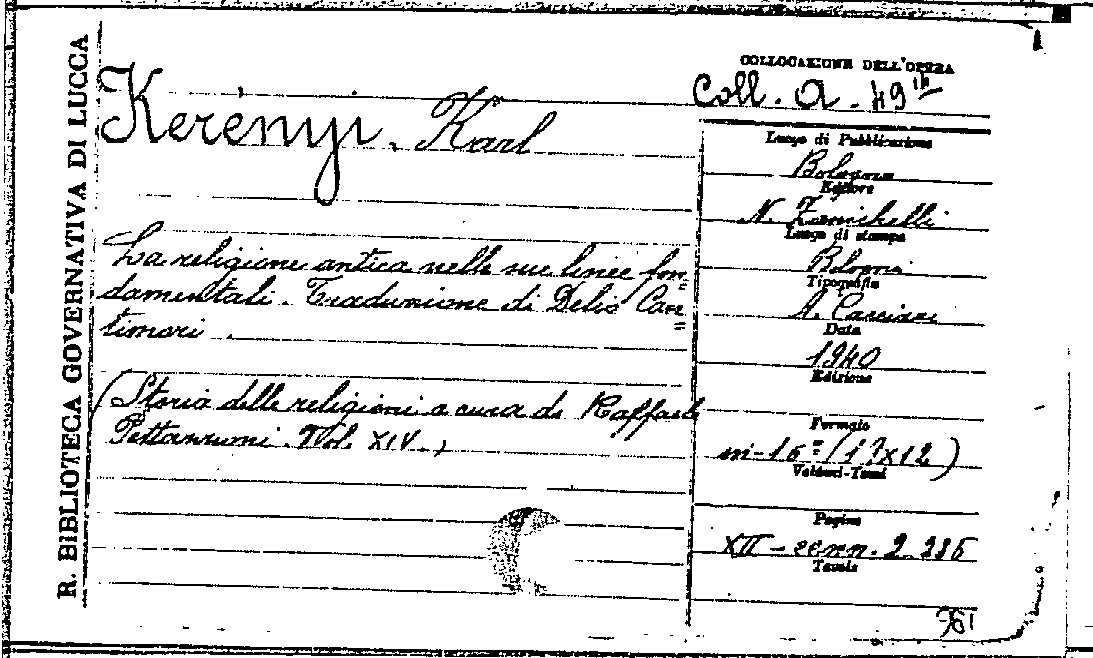 R. BIBLIOTECA GOVERNATIVA DI LUCCA
Kerènyi. Karl
La religione antica nelle sue linee fon=
damentali. Traduzione di Delio Can=
timori.
(Storia delle religioni a cura di Raffaele
Pettazzoni. Vol. XIV.)
COLLOCAZIONE DELL'OPERA
Coll. A. 49
Luogo di Pubblicazione
Bologna
Editore
N. Zanichelli
Luogo di stampa
Bologna
Tipografia
A. Cacciari
Data
1940
Edizione
Formato
in-16° (1?x12)
Volumi-Tomi
Pagine
XII - 2 286
Tavole
361